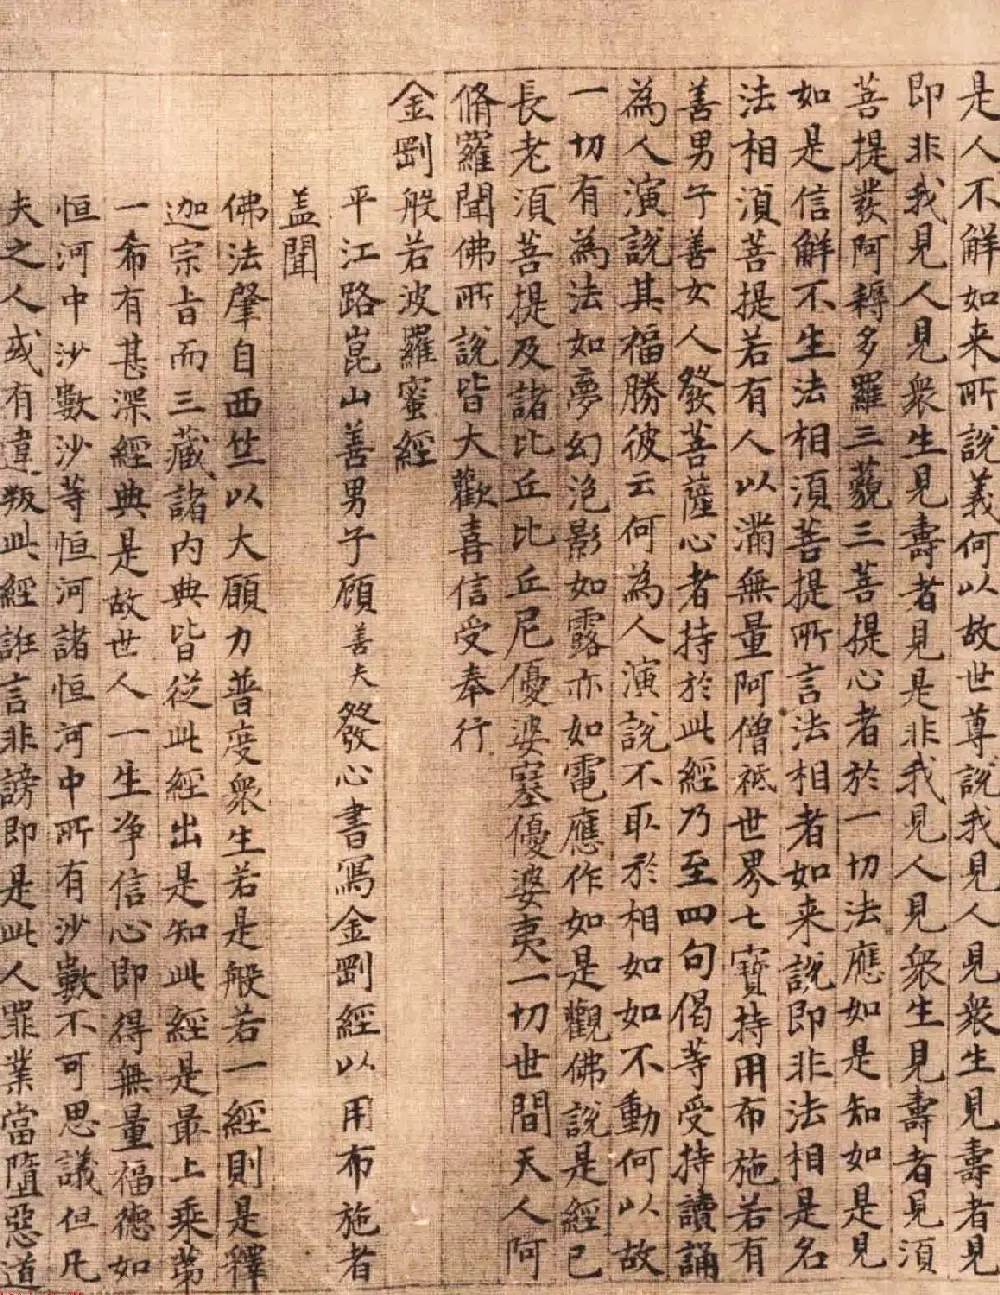 是人不解如来所說義何以故世尊說我見人見衆生見壽者見
即非我見人見衆生見壽者見是非我見人見衆生見壽者見湏
菩提發阿耨多羅三藐三菩提心者於一切法應如是知如是見
如是信解不生法相湏菩提所言法相者如来說即非法相是名
法相湏菩提若有人以滿無量阿僧祇世界七寶持用布施若有
善男子善女人發菩薩心者持於此經乃至四句偈等受持讀誦
為人演說其福勝彼云何為人演說不取於相如如不動何以故
一切有為法如夢幻泡影如露亦如電應作如是觀佛說是經已
長老湏菩提及諸比丘比丘尼優婆塞優婆夷一切世間天人阿
脩羅聞佛所說皆大歡喜信受奉行
金剛般若波羅蜜經
平江路崑山善男子顧善夫發心書寫金剛經以用布施者
盖聞
佛法肇自西竺以大願力普度衆生若是般若一經則是釋
迦宗旨而三藏諸内典皆從此經出是知此經是最上乘第
一希有甚深經典是故世人一生净信心即得無量福德如
恒河中沙數沙等恒河諸恒河中所有沙數不可思議但凡
夫之人或有違叛此經誑言非謗即是此人罪業當墮惡道